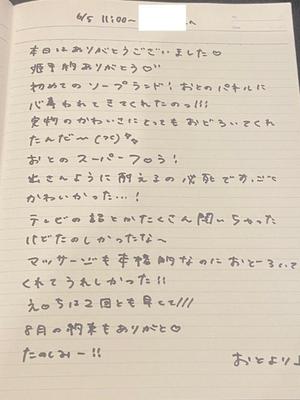 6/5 11:00〜
本日はありがとうございました♡
姫予約ありがとう♡
初めてのソープランド！おとのパネルに
心奪われてきてくれたのっ!!!
実物のかわいさにとってもおどろいてくれ
たんだ〜
おとのスーパーフ○ラ！
出さんように耐えるの必死ですっごく
かわいかった…！
テレビの話とかたくさん聞いちゃった
けどたのしかったな〜
マッサージも本格的なのにおどろいて
くれてうれしかった!!
え○ちは2回とも早くて///
8月の約束もありがと♡
たのしみー!!
おとより♪